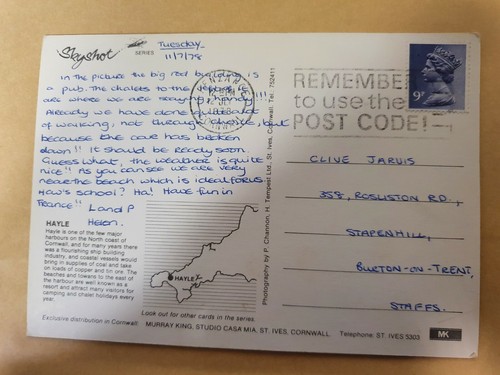 Skyshot
SERIES
Tuesday
11/7/78
In the picture the big red building is
a pub. The chalets to the left of it
are where we are staying, handy!!!
Already we have done quite a bit
of walking, not through choice, but
because the car has broken
down!! It should be ready soon.
Guess what, the weather is quite
nice!! As you can see we are very
near the beach which is ideal for us.
How's school? Ha! Have fun in
France!! L and P
Helen.
HAYLE
Hayle is one of the few major
harbours on the North coast of
Cornwall, and for many years there
was a flourishing ship building
industry, and coastal vessels would
bring in supplies of coal and take
on loads of copper and tin ore. The
beaches and towans to the east of
the harbour are well known as a
resort and attract many visitors for
camping and chalet holidays every
year.
HAYLE
Look out for other cards in the series.
Exclusive distribution in Cornwall
MURRAY KING, STUDIO CASA MIA, ST. IVES, CORNWALL.
Telephone: ST. IVES 5303
MK
Photography by P. Channon, H. Tempest Ltd., St. Ives, Cornwall. Tel. 752411
REMEMBER
to use the
POST CODE!
9P
CLIVE JARVIS
358, ROSLISTON RD,
STAPENHILL,
BURTON-ON-TRENT,
STAFFS.